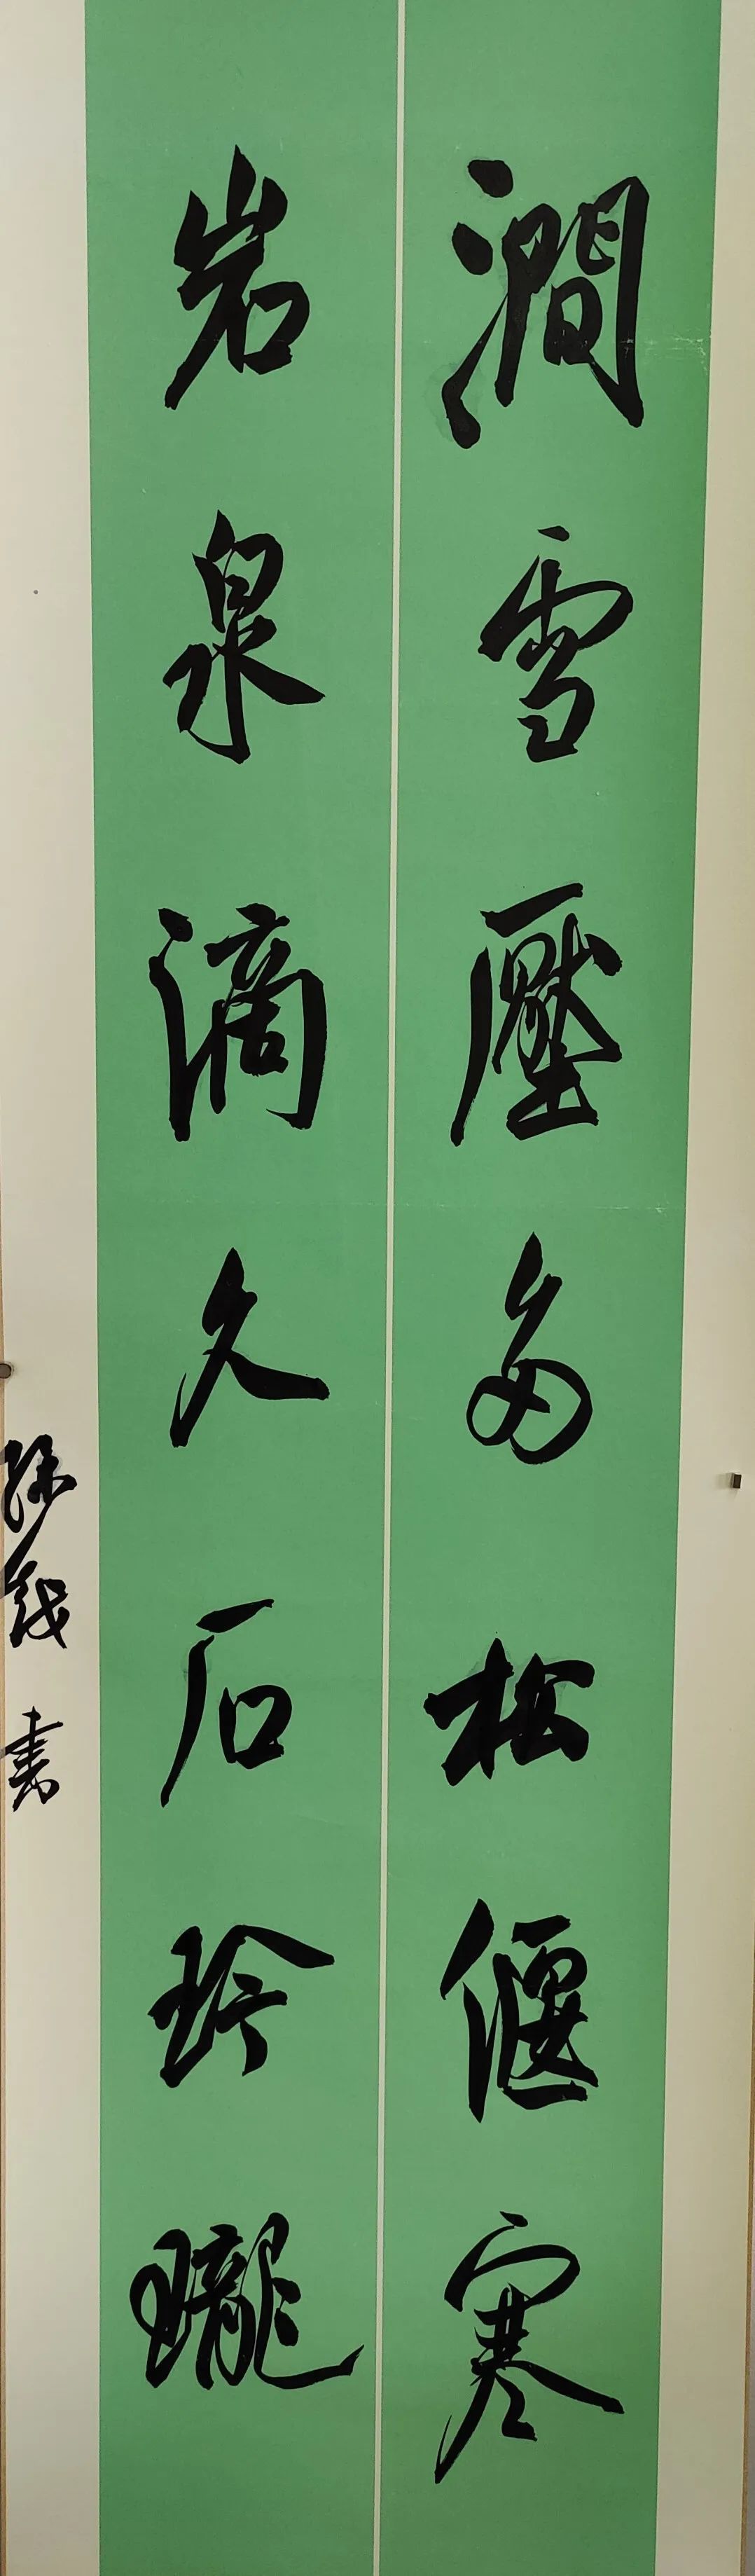 澗雪壓多松偃寒
岩泉滴久石玲瓏
書